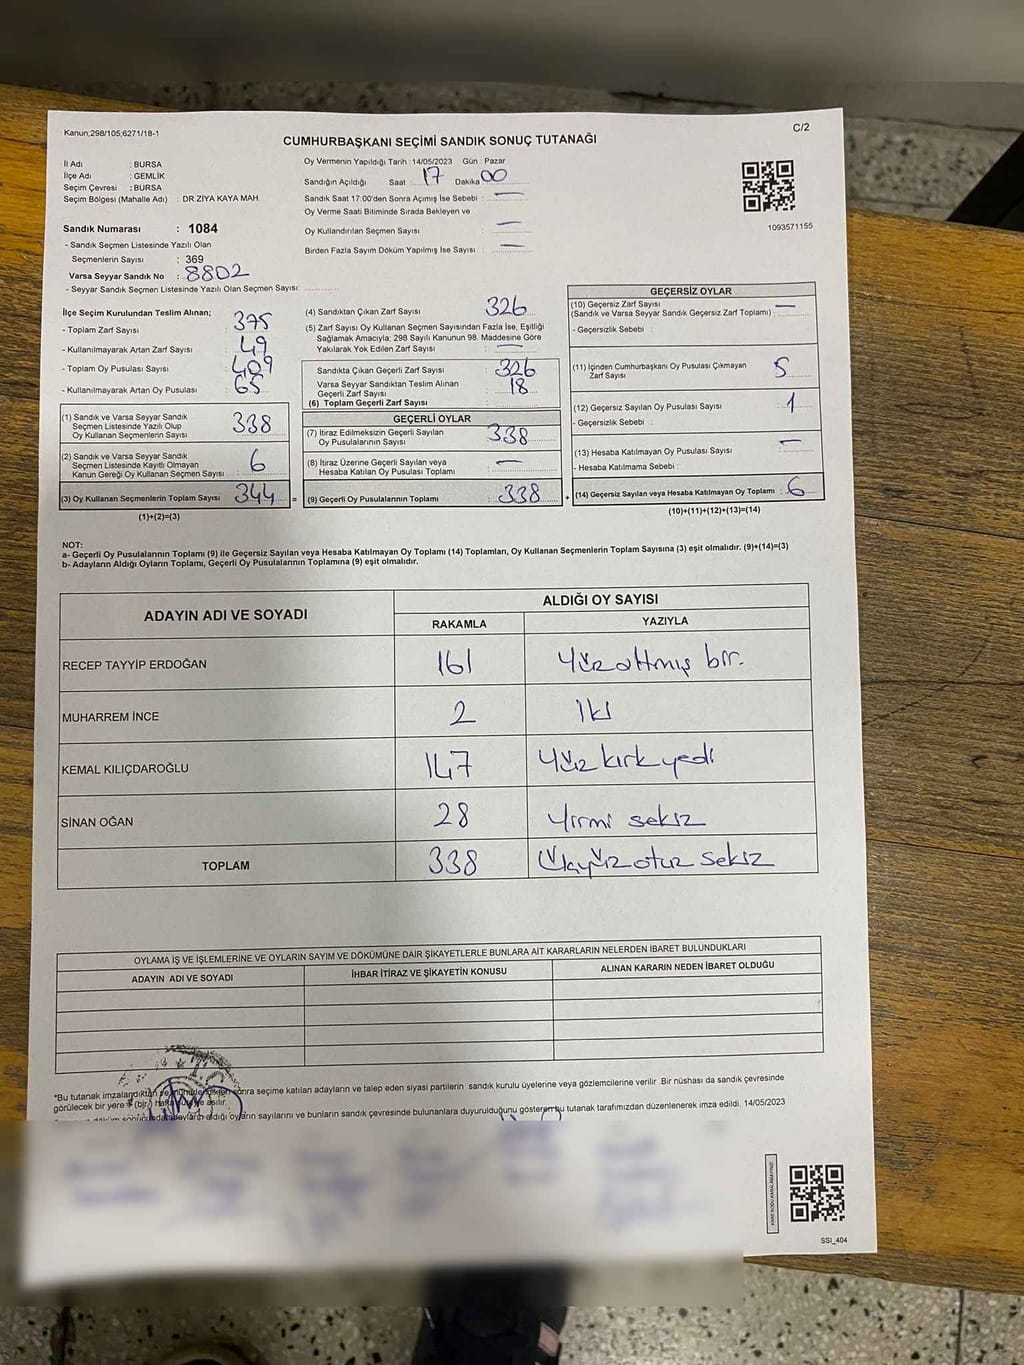 Kanun;298/105,6271/18-1
C/2
CUMHURBAŞKANI SEÇİMİ SANDIK SONUÇ TUTANAĞI
İl Adı : BURSA
İlçe Adı : GEMLİK
Seçim Çevresi : BURSA
Seçim Bölgesi (Mahalle Adı) : DR.ZİYA KAYA MAH
Sandık Numarası : 1084
- Sandık Seçmen Listesinde Yazılı Olan
Seçmenlerin Sayısı : 369
Varsa Seyyar Sandık No : 8802
- Seyyar Sandık Seçmen Listesinde Yazılı Olan Seçmen Sayısı:
Oy Vermenin Yapıldığı Tarih :14/05/2023 Gün : Pazar
Sandığın Açıldığı Saat : 17 Dakika 00
Sandık Saat 17:00'den Sonra Açımış İse Sebebi : —
Oy Verme Saati Bitiminde Sırada Bekleyen ve
Oy Kullandırılan Seçmen Sayısı : —
Birden Fazla Sayım Döküm Yapılmış İse Sayısı : —
1093571155
İlçe Seçim Kurulundan Teslim Alınan;
- Toplam Zarf Sayısı : 375
- Kullanılmayarak Artan Zarf Sayısı : 49
- Toplam Oy Pusulası Sayısı : 409
- Kullanılmayarak Artan Oy Pusulası : 65
(1) Sandık ve Varsa Seyyar Sandık
Seçmen Listesinde Yazılı Olup
Oy Kullanan Seçmenlerin Sayısı : 338
(2) Sandık ve Varsa Seyyar Sandık
Seçmen Listesinde Kayıtlı Olmayan
Kanun Gereği Oy Kullanan Seçmen Sayısı : 6
(3) Oy Kullanan Seçmenlerin Toplam Sayısı : 344 =
(1)+(2)=(3)
(4) Sandıktan Çıkan Zarf Sayısı : 326
(5) Zarf Sayısı Oy Kullanan Seçmen Sayısından Fazla İse, Eşitliği
Sağlamak Amacıyla; 298 Sayılı Kanunun 98. Maddesine Göre
Yakılarak Yok Edilen Zarf Sayısı : —
Sandıkta Çıkan Geçerli Zarf Sayısı : 326
Varsa Seyyar Sandıktan Teslim Alınan
Geçerli Zarf Sayısı : 18
(6) Toplam Geçerli Zarf Sayısı
GEÇERLİ OYLAR
(7) İtiraz Edilmeksizin Geçerli Sayılan
Oy Pusulalarının Sayısı : 338
(8) İtiraz Üzerine Geçerli Sayılan veya
Hesaba Katılan Oy Pusulası Toplamı : —
(9) Geçerli Oy Pusulalarının Toplamı : 338 +
GEÇERSİZ OYLAR
(10) Geçersiz Zarf Sayısı
(Sandık ve Varsa Seyyar Sandık Geçersiz Zarf Toplamı) : —
- Geçersizlik Sebebi :
(11) İçinden Cumhurbaşkanı Oy Pusulası Çıkmayan
Zarf Sayısı : 5
(12) Geçersiz Sayılan Oy Pusulası Sayısı : 1
- Geçersizlik Sebebi :
(13) Hesaba Katılmayan Oy Pusulası Sayısı : —
- Hesaba Katılmama Sebebi :
(14) Geçersiz Sayılan veya Hesaba Katılmayan Oy Toplamı : 6
(10)+(11)+(12)+(13)=(14)
NOT:
a- Geçerli Oy Pusulalarının Toplamı (9) ile Geçersiz Sayılan veya Hesaba Katılmayan Oy Toplamı (14) Toplamları, Oy Kullanan Seçmenlerin Toplam Sayısına (3) eşit olmalıdır. (9)+(14)=(3)
b- Adayların Aldığı Oyların Toplamı, Geçerli Oy Pusulalarının Toplamına (9) eşit olmalıdır.
ADAYIN ADI VE SOYADI
ALDIĞI OY SAYISI
RAKAMLA YAZIYLA
RECEP TAYYİP ERDOĞAN 161 Yüz altmış bir.
MUHARREM İNCE 2 iki
KEMAL KILIÇDAROĞLU 147 Yüz kırk yedi
SİNAN OĞAN 28 Yirmi sekiz
TOPLAM 338 Üçyüz otuz sekiz
OYLAMA İŞ VE İŞLEMLERİNE VE OYLARIN SAYIM VE DÖKÜMÜNE DAİR ŞİKAYETLERLE BUNLARA AİT KARARLARIN NELERDEN İBARET BULUNDUKLARI
ADAYIN ADI VE SOYADI İHBAR İTİRAZ VE ŞİKAYETİN KONUSU ALINAN KARARIN NEDEN İBARET OLDUĞU
*Bu tutanak imzalandıktan ve sonra seçime katılan adayların ve talep eden siyasi partilerin sandık kurulu üyelerine veya gözlemcilerine verilir .Bir nüshası da sandık çevresinde
görülecek bir yere (bir) hafta asılır.
aldığı oyların sayılarını ve bunların sandık çevresinde bulunanlara duyurulduğunu gösteren bu tutanak tarafımızdan düzenlenerek imza edildi. 14/05/2023
SSI_404